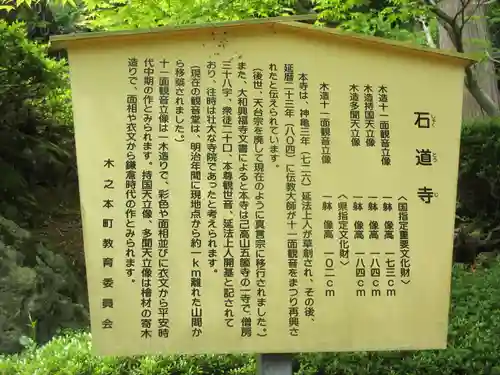 石道寺
しゃくどうじ
〈国指定重要文化財〉
木造十一面観音立像　一躰　像高　一七三㎝
木造持国天立像　一躰　像高　一八四㎝
木造多聞天立像　一躰　像高　一八四㎝
〈県指定文化財〉
木造十一面観音立像　一躰　像高　一〇二㎝
本寺は、神亀三年（七二六）延法上人が草創され、その後、
延暦二十三年（八〇四）に伝教大師が十一面観音をまつり再興さ
れたと伝えられています。
（後世、天台宗を廃して現在のように真言宗に移行されました。）
また、大和興福寺文書によると本寺は己高山五箇寺の一寺で、僧房
三十八宇、衆徒二十口、本尊観世音、延法上人開基と記されて
おり、往時は壮大な寺院であったと考えられます。
（現在の観音堂は、明治年間に現地点から約一ｋｍ離れた山間か
ら移築されました。）
十一面観音立像は一木造りで、彩色や面相並びに衣文から平安時
代中期の作とみられます。持国天立像、多聞天立像は檜材の寄木
造りで、面相や衣文から鎌倉時代の作とみられます。
木之本町教育委員会